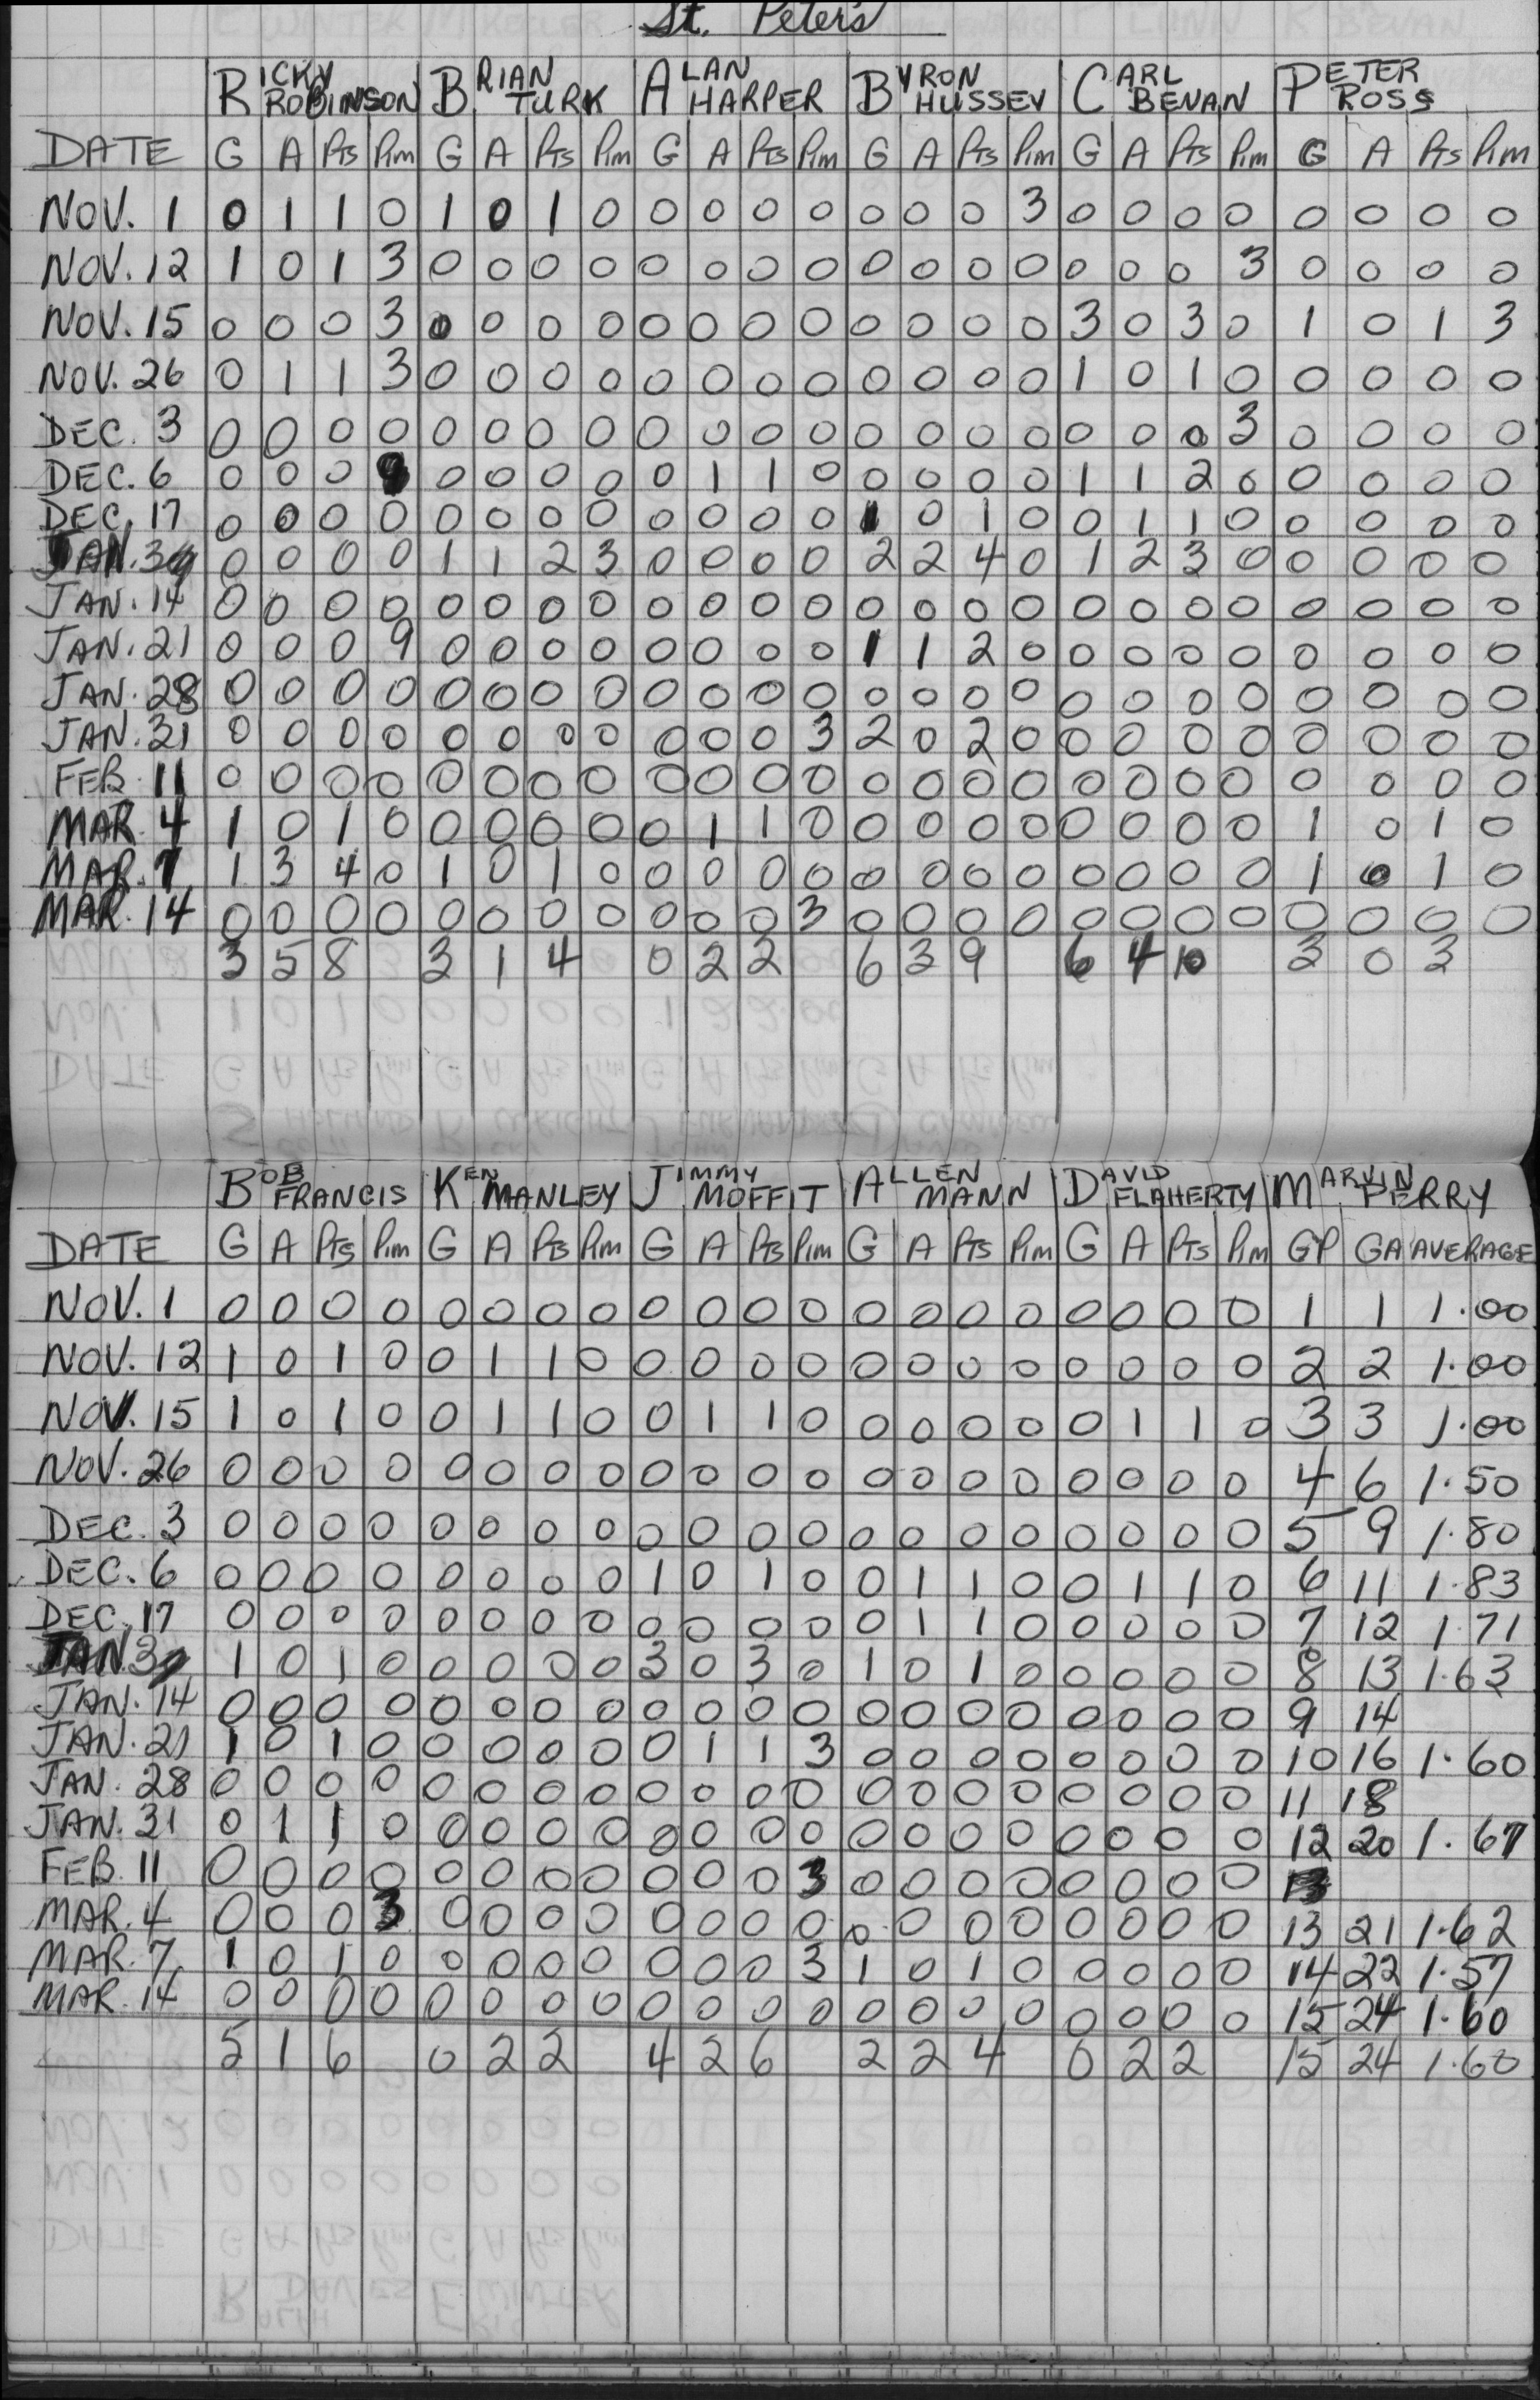 St. Peter's
RICKY ROBINSON BRIAN TURK ALAN HARPER BYRON HUSSEY CARL BENAN PETER ROSS
DATE G A Pts Pim G A Pts Pim G A Pts Pim G A Pts Pim G A Pts Pim G A Pts Pim
NOV. 1 0 1 1 0 1 0 1 0 0 0 0 0 0 0 0 3 0 0 0 0 0 0 0 0
NOV. 12 1 0 1 3 0 0 0 0 0 0 0 0 0 0 0 0 0 0 0 3 0 0 0 0
NOV. 15 0 0 0 3 0 0 0 0 0 0 0 0 0 0 0 0 3 0 3 0 1 0 1 3
NOV. 26 0 1 1 3 0 0 0 0 0 0 0 0 0 0 0 0 1 0 1 0 0 0 0 0
DEC. 3 0 0 0 0 0 0 0 0 0 0 0 0 0 0 0 0 0 0 0 3 0 0 0 0
DEC. 6 0 0 0 9 0 0 0 0 0 1 1 0 0 0 0 0 1 1 2 0 0 0 0 0
DEC. 17 0 0 0 0 0 0 0 0 0 0 0 0 1 0 1 0 0 1 1 0 0 0 0 0
JAN. 3 0 0 0 0 1 1 2 3 0 0 0 0 2 2 4 0 1 2 3 0 0 0 0 0
JAN. 14 0 0 0 0 0 0 0 0 0 0 0 0 0 0 0 0 0 0 0 0 0 0 0 0
JAN. 21 0 0 0 9 0 0 0 0 0 0 0 0 1 1 2 0 0 0 0 0 0 0 0 0
JAN. 28 0 0 0 0 0 0 0 0 0 0 0 0 0 0 0 0 0 0 0 0 0 0 0 0
JAN. 31 0 0 0 0 0 0 0 0 0 0 0 3 2 0 2 0 0 0 0 0 0 0 0 0
FEB. 11 0 0 0 0 0 0 0 0 0 0 0 0 0 0 0 0 0 0 0 0 0 0 0 0
MAR. 4 1 0 1 0 0 0 0 0 0 1 1 0 0 0 0 0 0 0 0 0 1 0 1 0
MAR. 7 1 3 4 0 1 0 1 0 0 0 0 0 0 0 0 0 0 0 0 0 1 0 1 0
MAR. 14 0 0 0 0 0 0 0 0 0 0 0 3 0 0 0 0 0 0 0 0 0 0 0 0
3 5 8 3 1 4 0 2 2 6 3 9 6 4 10 3 0 3
BOB FRANCIS KEN MANLEY JIMMY MOFFIT ALLEN MANN DAVID FLAHERTY MARVIN PERRY
DATE G A Pts Pim G A Pts Pim G A Pts Pim G A Pts Pim G A Pts Pim GP GA AVERAGE
NOV. 1 0 0 0 0 0 0 0 0 0 0 0 0 0 0 0 0 0 0 0 0 1 1 1.00
NOV. 12 1 0 1 0 0 1 1 0 0 0 0 0 0 0 0 0 0 0 0 0 2 2 1.00
NOV. 15 1 0 1 0 0 1 1 0 0 1 1 0 0 0 0 0 0 1 1 0 3 3 1.00
NOV. 26 0 0 0 0 0 0 0 0 0 0 0 0 0 0 0 0 0 0 0 0 4 6 1.50
DEC. 3 0 0 0 0 0 0 0 0 0 0 0 0 0 0 0 0 0 0 0 0 5 9 1.80
DEC. 6 0 0 0 0 0 0 0 0 1 0 1 0 0 1 1 0 0 1 1 0 6 11 1.83
DEC. 17 0 0 0 0 0 0 0 0 0 0 0 0 0 1 1 0 0 0 0 0 7 12 1.71
JAN. 3 1 0 1 0 0 0 0 0 3 0 3 0 1 0 1 0 0 0 0 0 8 13 1.63
JAN. 14 0 0 0 0 0 0 0 0 0 0 0 0 0 0 0 0 0 0 0 0 9 14
JAN. 21 1 0 1 0 0 0 0 0 0 1 1 3 0 0 0 0 0 0 0 0 10 16 1.60
JAN. 28 0 0 0 0 0 0 0 0 0 0 0 0 0 0 0 0 0 0 0 0 11 18
JAN. 31 0 1 1 0 0 0 0 0 0 0 0 0 0 0 0 0 0 0 0 0 12 20 1.67
FEB. 11 0 0 0 0 0 0 0 0 0 0 0 3 0 0 0 0 0 0 0 0
MAR. 4 0 0 0 3 0 0 0 0 0 0 0 0 0 0 0 0 0 0 0 0 13 21 1.62
MAR. 7 1 0 1 0 0 0 0 0 0 0 0 3 1 0 1 0 0 0 0 0 14 22 1.57
MAR. 14 0 0 0 0 0 0 0 0 0 0 0 0 0 0 0 0 0 0 0 0 15 24 1.60
5 1 6 0 2 2 4 2 6 2 2 4 0 2 2 15 24 1.60